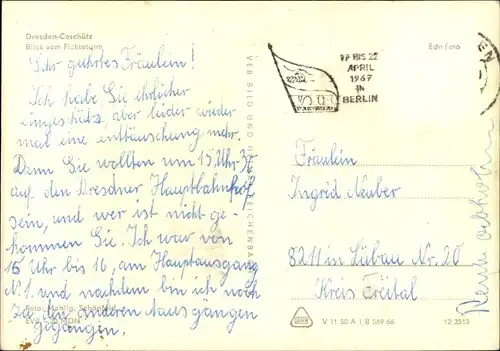 Dresden-Coschütz
Blick vom Fichteturm
Sehr geehrtes Fräulein!
Ich habe Sie ehrlicher
eingeschätzt, aber leider wieder
mal eine enttäuschung mehr.
Denn Sie wollten um 15 Uhr 30
auf den Dresdner Hauptbahnhof
sein, und wer ist nicht ge-
kommen Sie. Ich war von
15 Uhr bis 16, am Hauptausgang
N. 1. und nachdem bin ich noch
zu anderen Ausgängen
gegangen.
VEB BILD UND HEIMAT REICHENBACH
Echt Foto
17 BIS 22
APRIL
1967
IN
BERLIN
Fräulein
Ingrid Neuber
8211 in Lübau Nr. 20
Kreis Freital
V 11 50 A 1 B 519 66
12.3512